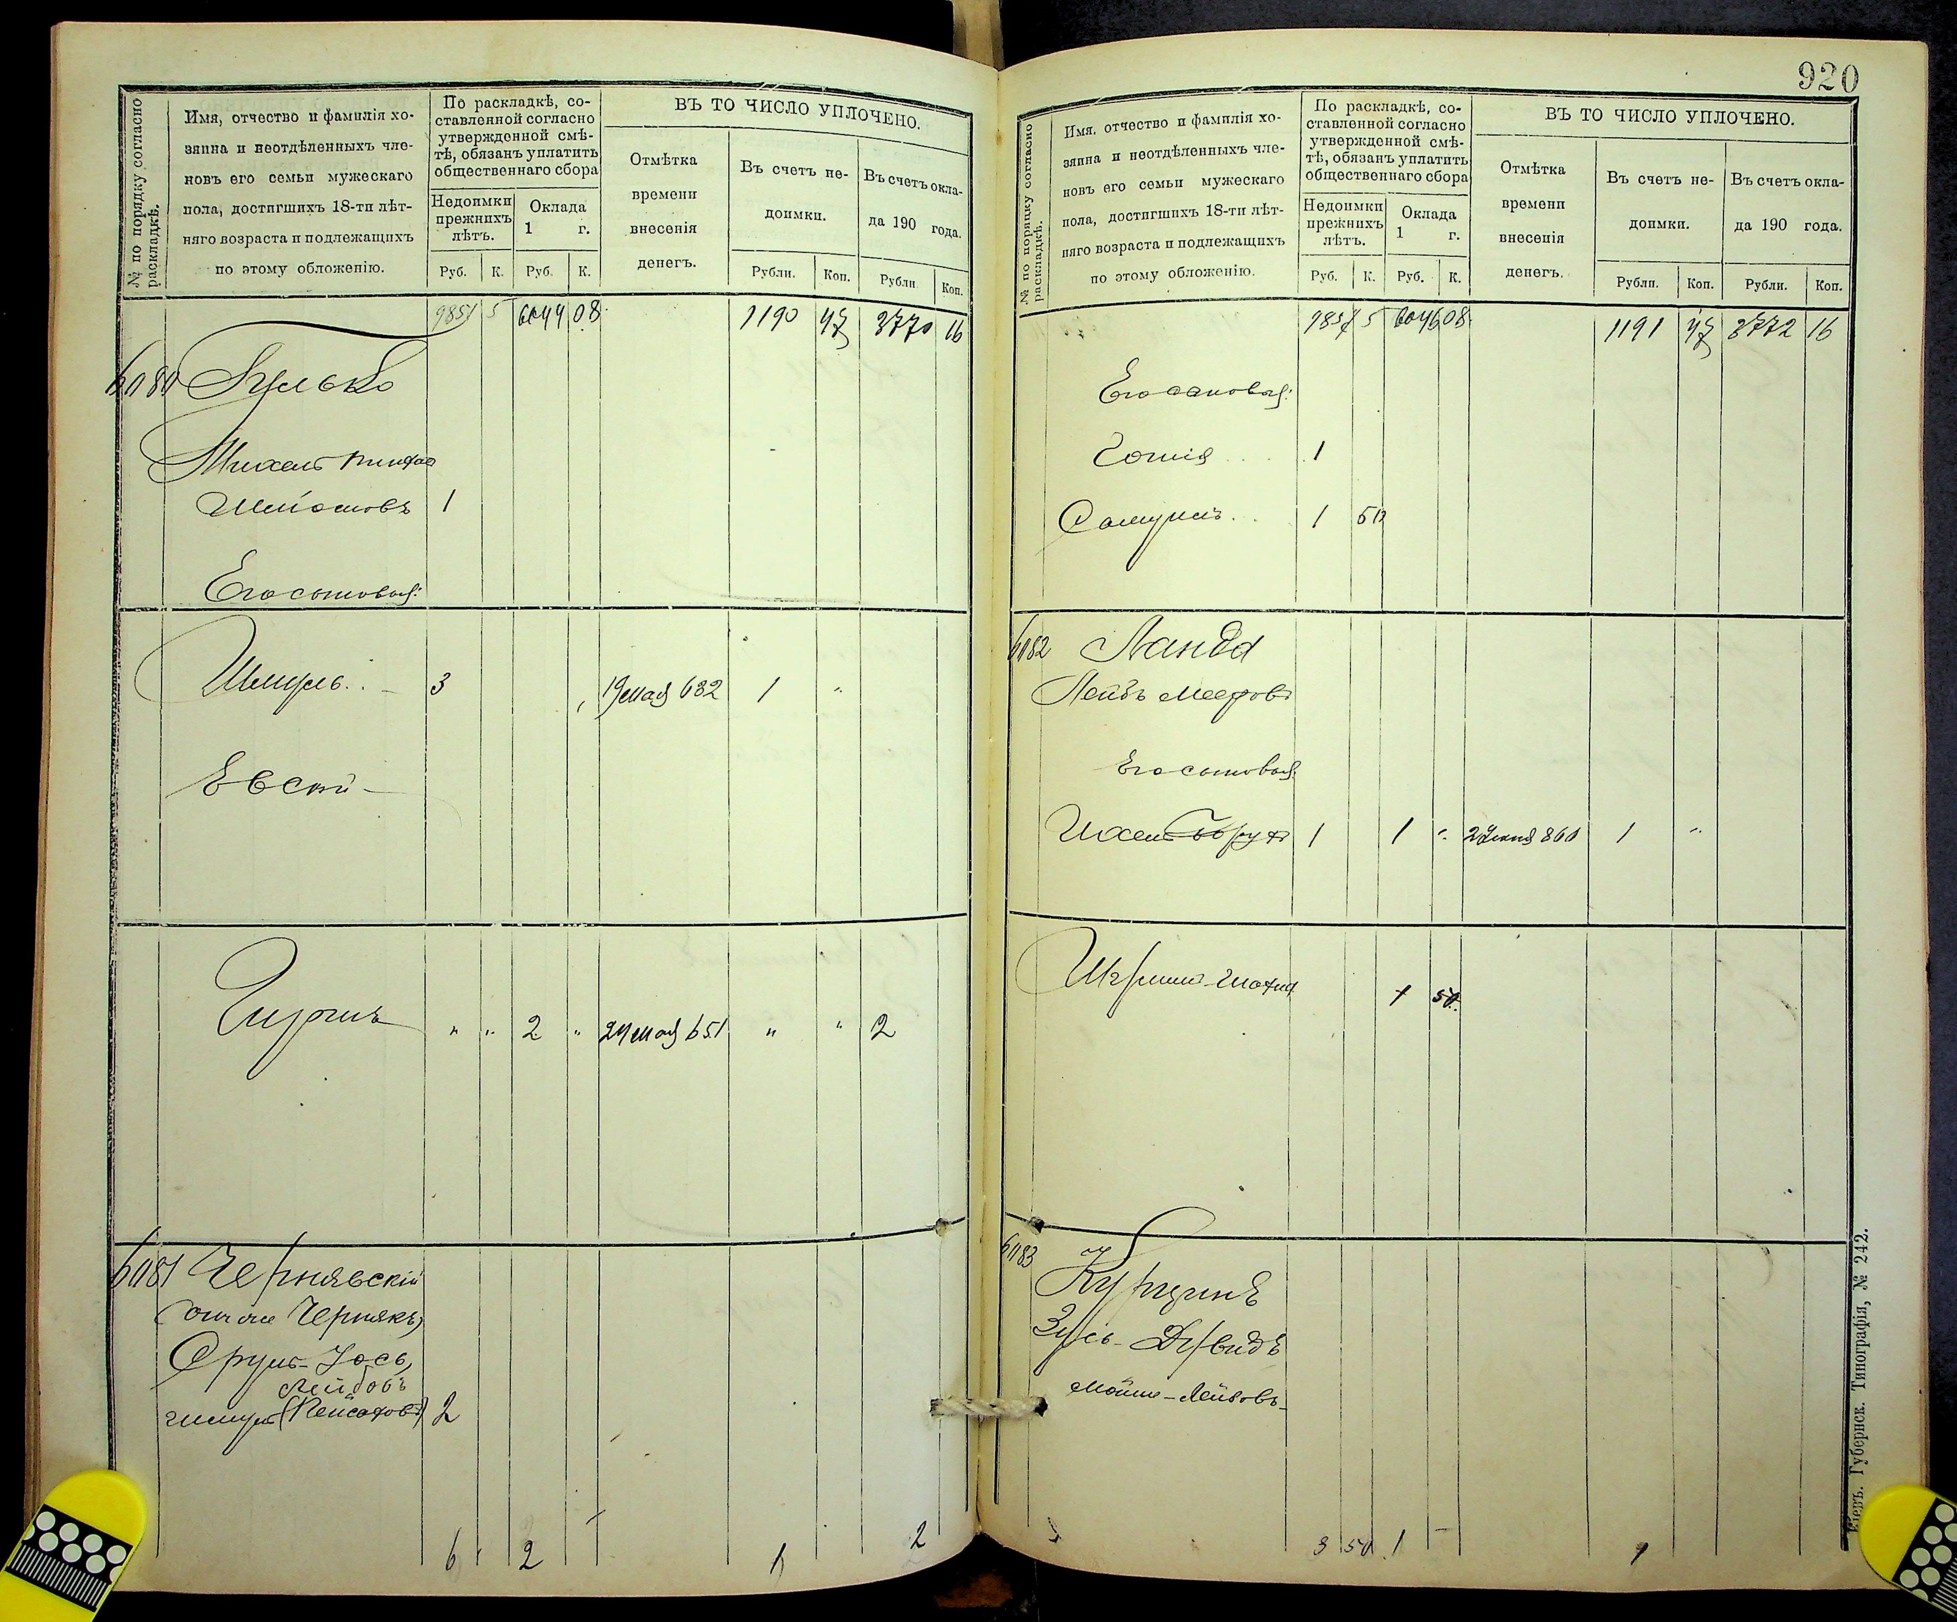 № по порядку согласно
раскладкѣ.
Имя, отчество и фамилія хо-
зяина и неотдѣленныхъ чле-
новъ его семьи мужескаго
пола, достигшихъ 18-ти лѣт-
няго возраста и подлежащихъ
по этому обложенію.
По раскладкѣ, со-
ставленной согласно
утвержденной смѣ-
тѣ, обязанъ уплатить
общественнаго сбора
Недоимки
прежнихъ
лѣтъ.
Оклада
1 г.
Руб. К. Руб. К.
ВЪ ТО ЧИСЛО УПЛОЧЕНО.
Отмѣтка
времени
внесенія
денегъ.
Въ счетъ не-
доимки.
Рубли. Коп.
Въ счетъ окла-
да 190 года.
Рубли Коп.
9851 5 6044 08 1190 47 3770 16
Гулько
1
Его сыновья:
Шмуль 3 19 мая 632 1 "
Евсей
" " 2 " 24 мая 651 " " 2
6181 Чернявскій
(онъ же Чернякъ)
Сруль-Іось
Лейбовъ
(Пейсаховъ) 2
6 2 1 2
920
№ по порядку согласно
раскладкѣ.
Имя, отчество и фамилія хо-
зяина и неотдѣленныхъ чле-
новъ его семьи мужескаго
пола, достигшихъ 18-ти лѣт-
няго возраста и подлежащихъ
по этому обложенію.
По раскладкѣ, со-
ставленной согласно
утвержденной смѣ-
тѣ, обязанъ уплатить
общественнаго сбора
Недоимки
прежнихъ
лѣтъ.
Оклада
1 г.
Руб. К. Руб. К.
ВЪ ТО ЧИСЛО УПЛОЧЕНО.
Отмѣтка
времени
внесенія
денегъ.
Въ счетъ не-
доимки.
Рубли. Коп.
Въ счетъ окла-
да 190 года.
Рубли. Коп.
9857 5 6046 08 1191 47 3772 16
Его сыновья:
1
Самуилъ 1 50
6182 Ланда
Лейбъ Мееровъ
Его сыновья:
1 1 " 1 "
1 50
6183
Зусь-Дувидъ
Мойше-Лейбовъ
3 50 1 — 1
Кіевъ. Губернск. Типографія, № 242.